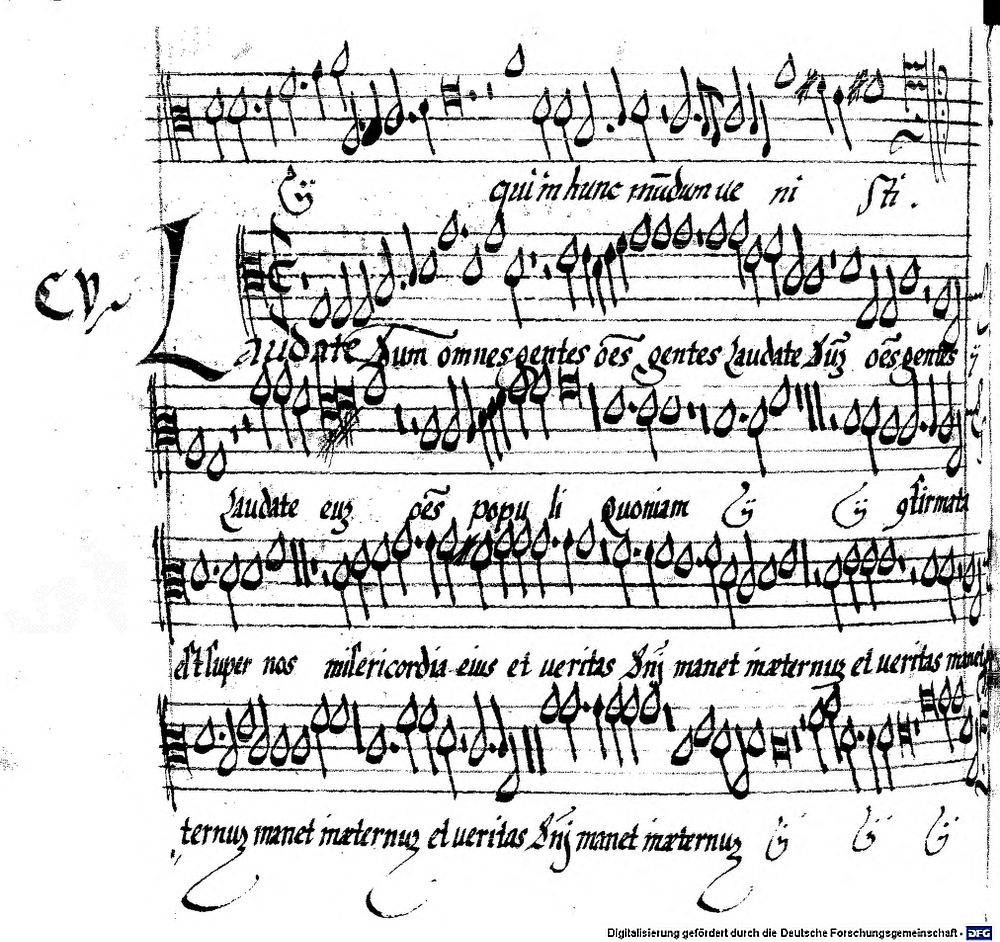 ij qui in hunc mūdum ve ni sti.
CV.
Laudate Dum omnes gentes oēs gentes Laudate Dūꝫ oēs gentes ij
Laudate euꝫ oēs popu li Quoniam ij ij ꝯfirmata
est super nos misericordia eius et veritas Dn̄j manet inæternuꝫ et veritas manet
ternuꝫ manet inæternuꝫ et veritas Dn̄j manet inæternuꝫ ij ij ij
Digitalisierung gefördert durch die Deutsche Forschungsgemeinschaft - DFG